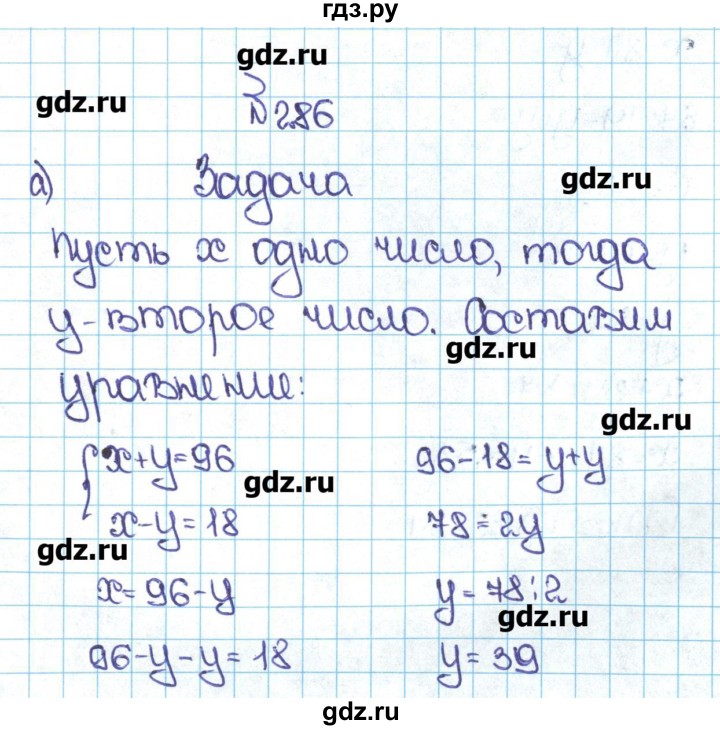 гдз.ру
gdz.ru
gdz.ru
№ 286
а) Задача
gdz.ru
Пусть x одно число, тогда
y - второе число. Составим
gdz.ru
уравнение:
gdz.ru
{ x+y=96
96-18=y+y
gdz.ru
x-y=18
78=2y
gdz.ru
x=96-y
y=78:2
gdz.ru
96-y-y=18
y=39
gdz.ru